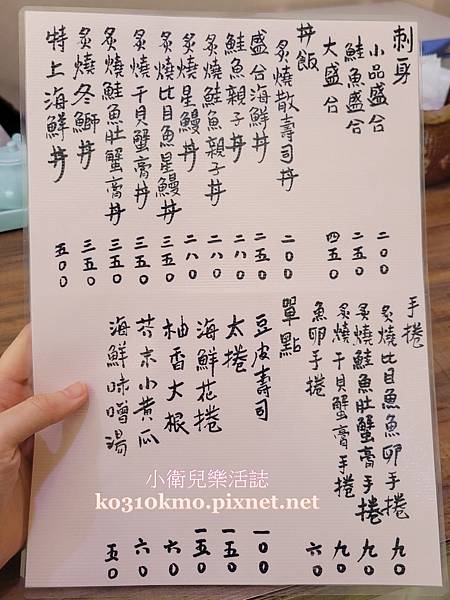 刺身
小品盛合 二00
鮭魚盛合 二五0
大盛合 四五0
丼飯
炙燒散壽司丼 二00
盛合海鮮丼 二五0
鮭魚親子丼 二八0
炙燒星鰻丼 二八0
炙燒鮭魚親子丼 二八0
炙燒比目魚星鰻丼 三五0
炙燒干貝蟹膏丼 三五0
炙燒鮭魚肚蟹膏丼 三五0
炙燒冬鰤丼 三五0
特上海鮮丼 五00
手捲
炙燒比目魚魚卵手捲 九0
炙燒鮭魚肚蟹膏手捲 九0
炙燒干貝蟹膏手捲 九0
魚卵手捲 六0
單點
豆皮壽司 一00
太捲 一五0
海鮮花捲 一五0
柚香大根 六0
芥末小黃瓜 六0
海鮮味噌湯 五0
小衛兒樂活誌
ko310kmo.pixnet.net